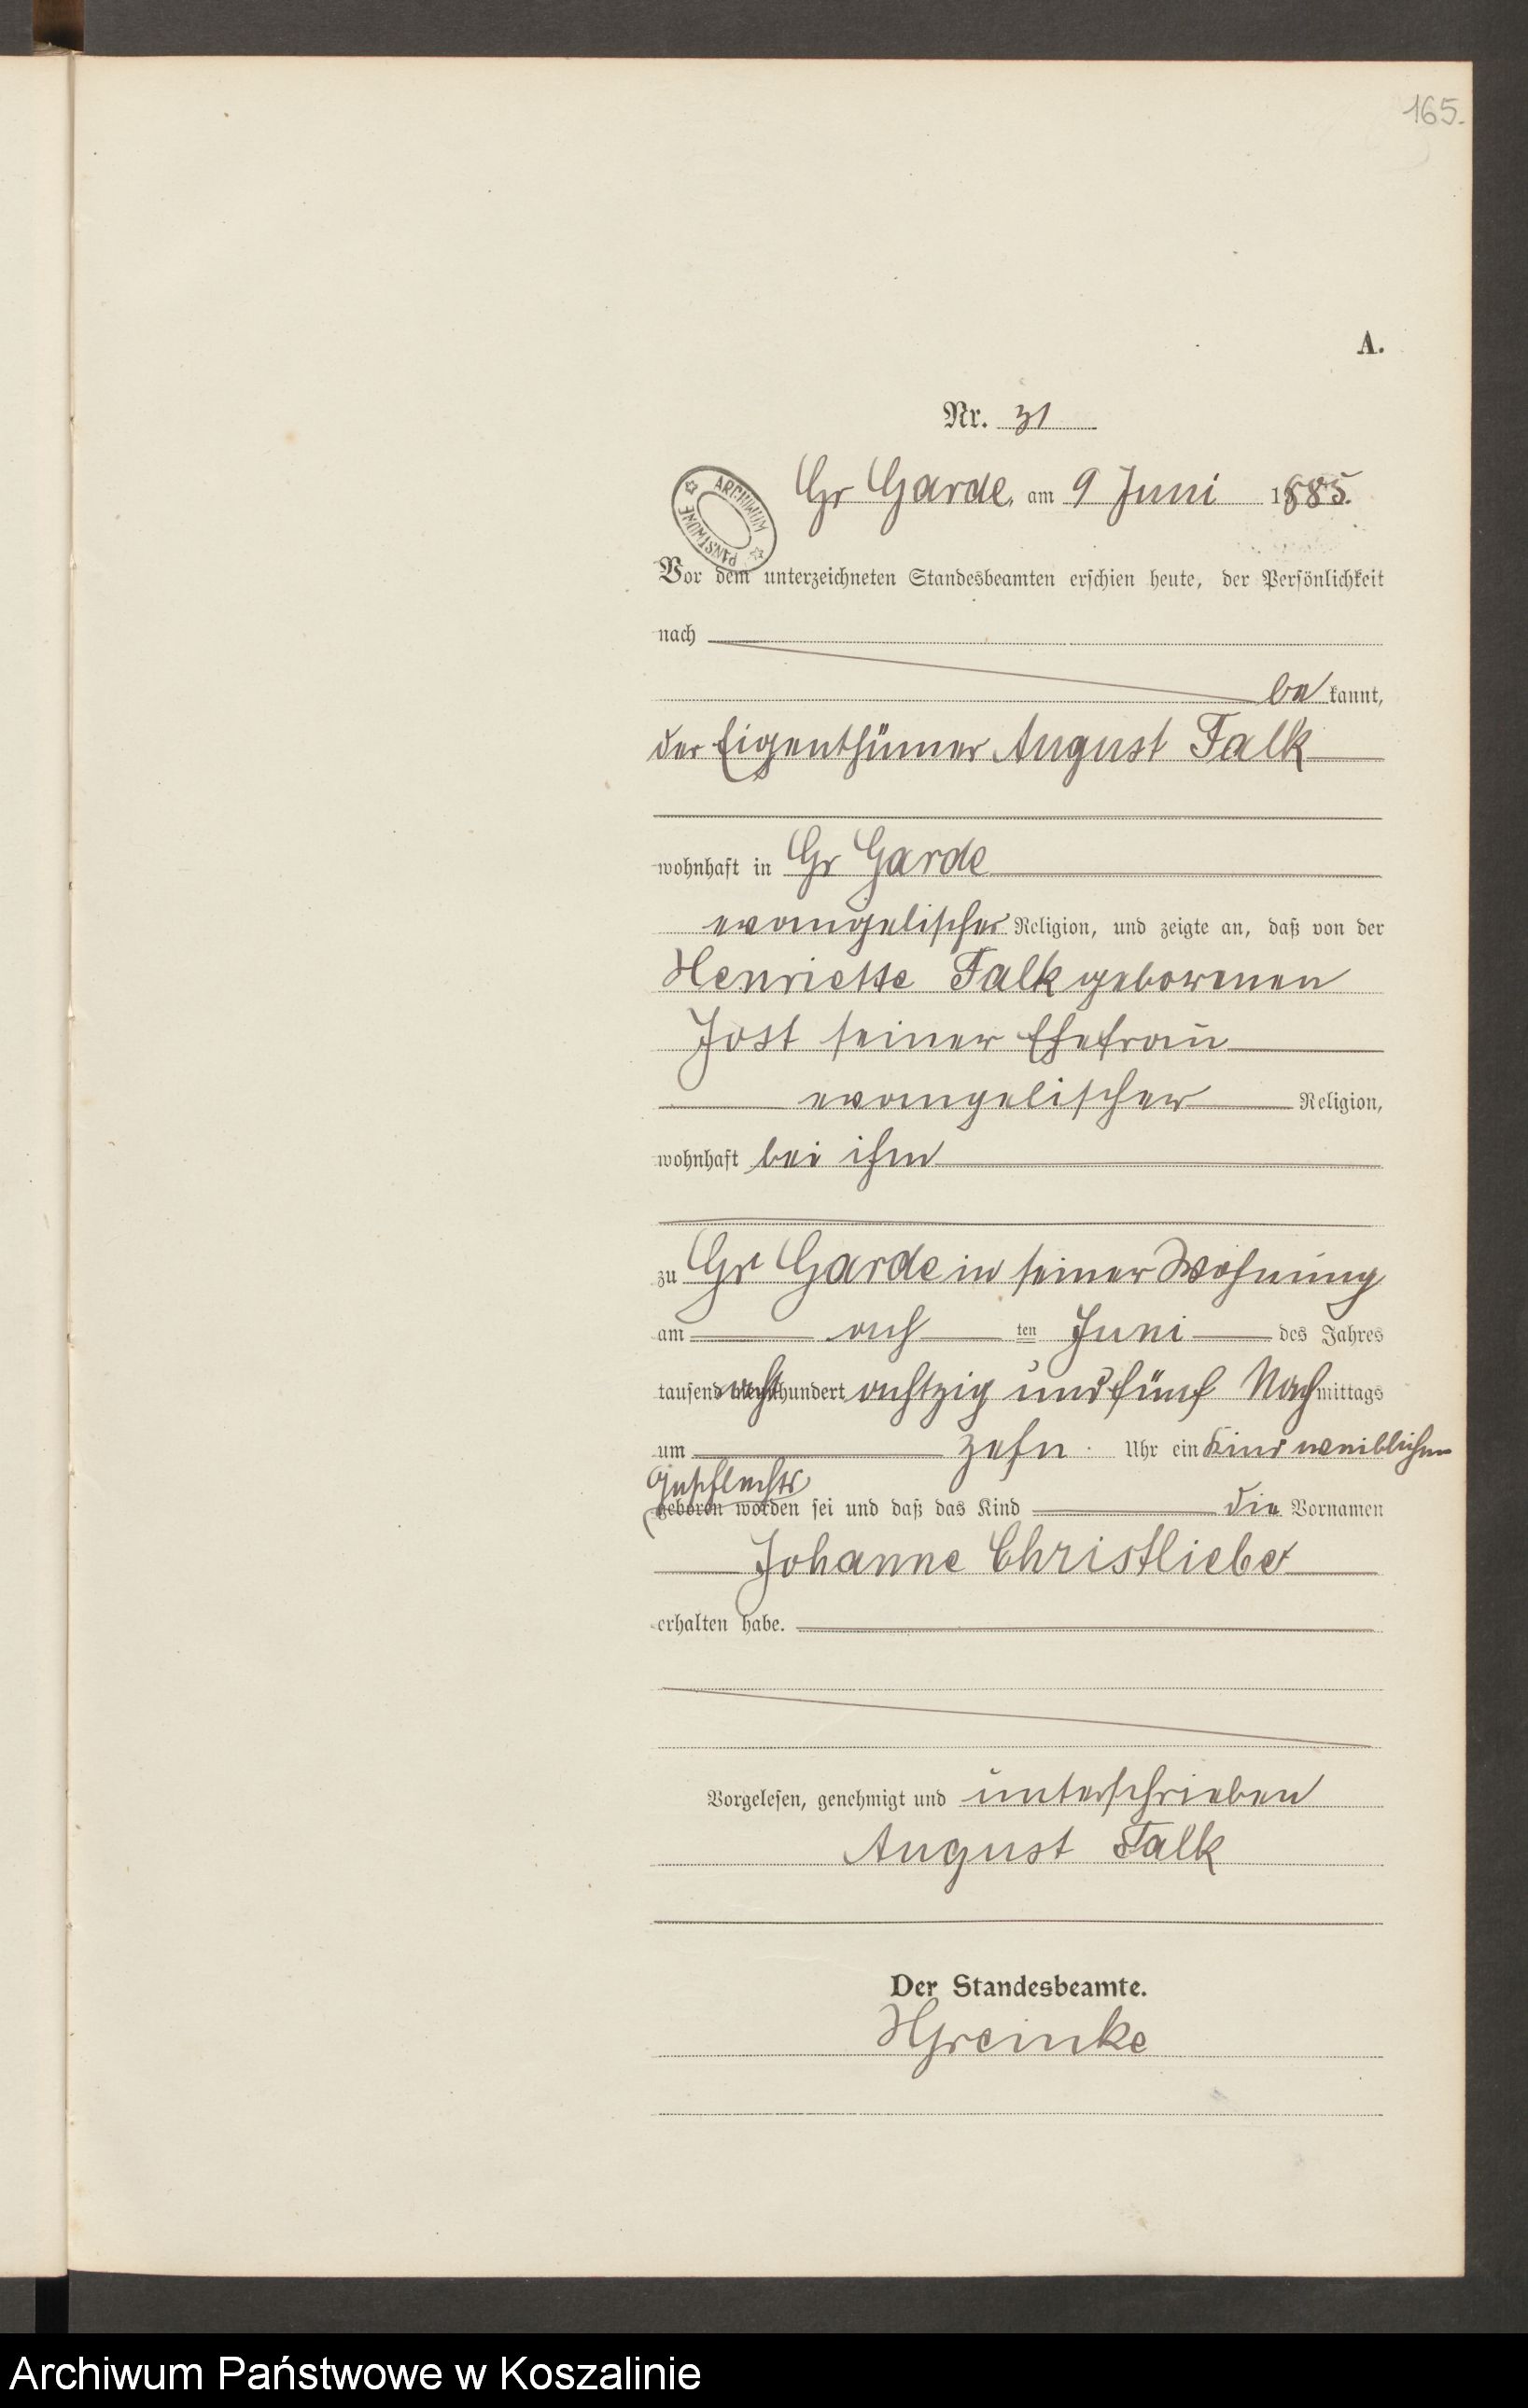 165.
A.
Nr. 31
ARCHIWUM PAŃSTWOWE
Gr Garde, am 9 Juni 1885.
Vor dem unterzeichneten Standesbeamten erschien heute, der Persönlichkeit
nach
be kannt,
der Eigenthümer August Falk
wohnhaft in Gr Garde
evangelischer Religion, und zeigte an, daß von der
Henriette Falk geborenen
Jost seiner Ehefrau
evangelischer Religion,
wohnhaft bei ihm
zu Gr Garde in seiner Wohnung
am ach ten Juni des Jahres
tausend acht hundert achtzig und fünf Nach mittags
um zehn Uhr ein Kind weiblichen
Geschlechts
geboren worden sei und daß das Kind die Vornamen
Johanne Christliebe
erhalten habe.
Vorgelesen, genehmigt und unterschrieben
August Falk
Der Standesbeamte.
HGreinke
Archiwum Państwowe w Koszalinie